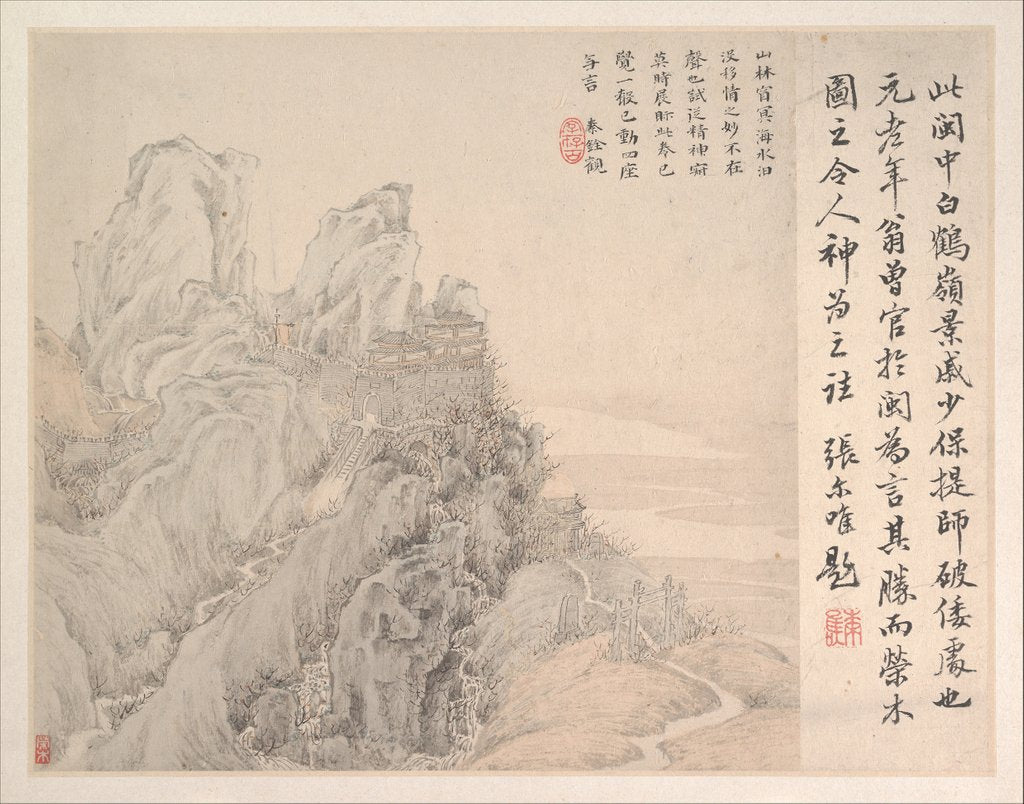 此閩中白鶴嶺景戚少保提師破倭處也
元老年翁曾官於閩為言其勝而榮木
圖之令人神為之往 張尔唯題
山林窅冥海水汩
没移情之妙不在
聲也試從精神寂
莫時展眎此卷已
覺一艘已動四座
與言 秦銓觀
榮木